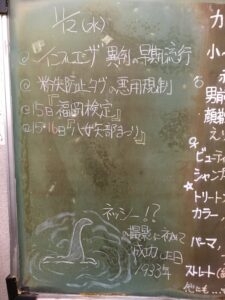 11/12(水)
① インフルエンザ 異例の早期流行
② 紛失防止タグの悪用規制
③ 15日『福岡検定』
④ 15・16日『八女矢部まつり』
ネッシー!?
の撮影に初めて
成功した日
1933年
カ
小
男前
顔
え
ビューティ
シャン
トリートメン
カラー
パーマ
ストレート
他にも